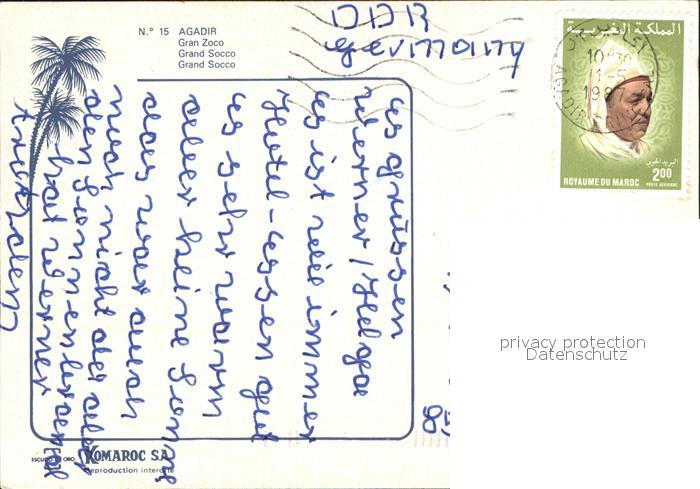 N.° 15 AGADIR
Gran Zoco
Grand Socco
Grand Socco
DDR
germany
المملكة المغربية
10 30
1-5
1987
AGADIR
البريد الجوي
2.00
ROYAUME DU MAROC POSTE AERIENNE
es grüssen
Werner / Helga
es ist wie immer
Hotel-Essen gut
es sehr warm
aber keine Sonne
das war auch
noch nicht da aber
den Sonnenbrand
hat Werner
trotzdem
privacy protection
Datenschutz
ESCUDO DE ORO
KOMAROC S.A.
Reproduction interdite